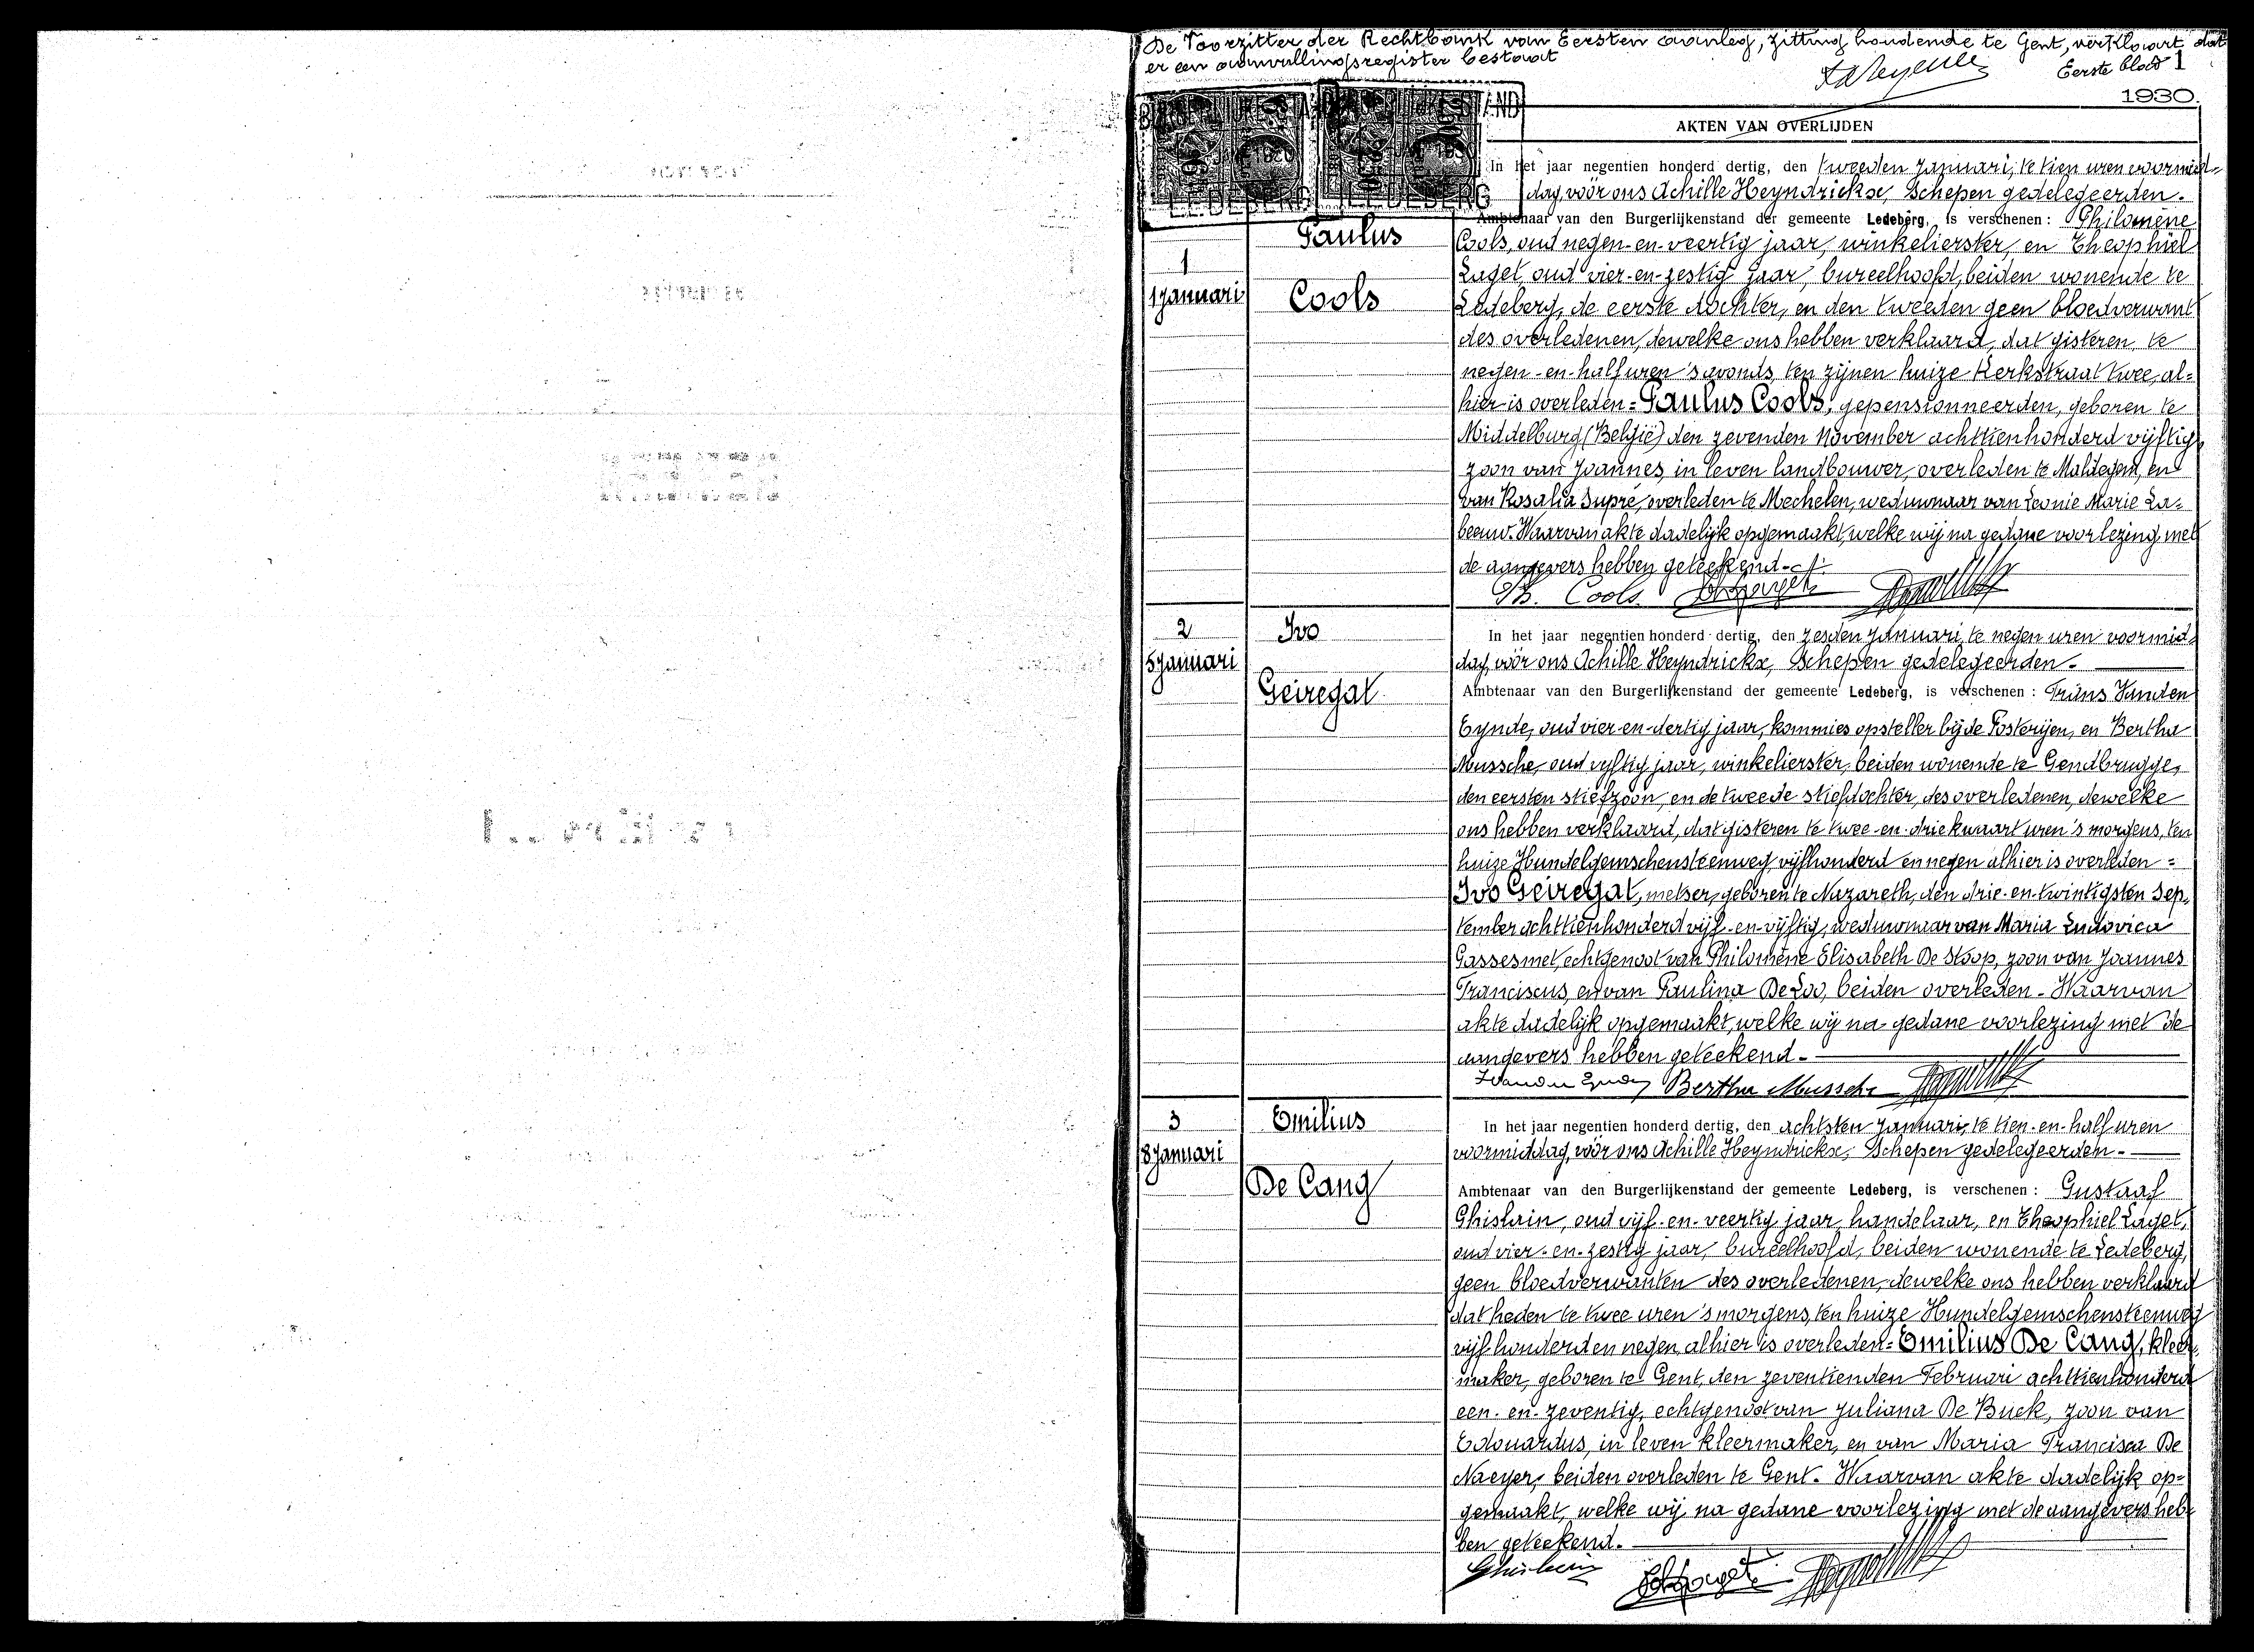 De Voorzitter der Rechtbank van Eersten aanleg, zitting houdende te Gent, verklaart dat
er een aanvullingsregister bestaat
Eerste blad 1
1930.
AKTEN VAN OVERLIJDEN
In het jaar negentien honderd dertig, den tweeden Januari, te tien uren voormid-
dag, vóór ons Achille Heyndrickx, Schepen gedelegeerden.
Ambtenaar van den Burgerlijkenstand der gemeente Ledeberg, is verschenen : Philomène
Paulus
Cools, oud negen-en-veertig jaar, winkelierster, en Theophiel
1
Laget, oud vier-en-zestig jaar, bureelhoofd, beiden wonende te
1 Januari
Cools
Ledeberg, de eerste dochter, en den tweeden geen bloedverwant
des overledenen, dewelke ons hebben verklaard, dat gisteren, te
negen-en-half uren 's avonds, ten zijnen huize Kerkstraat twee, al=
hier is overleden = Paulus Cools, gepensionneerden, geboren te
Middelburg (België) den zevenden November achttienhonderd vijftig,
zoon van Joannes, in leven landbouwer, overleden te Maldegem, en
van Rosalia Dupré, overleden te Mechelen, weduwnaar van Leonie Marie La=
beeuw. Waarvan akte dadelijk opgemaakt, welke wij na gedane voorlezing met
de aangevers hebben geteekend.-
Ph. Cools
2
Ivo
In het jaar negentien honderd dertig, den zesden Januari, te negen uren voormid-
5 Januari
dag, vóór ons Achille Heyndrickx, Schepen gedelegeerden.
Geiregat
Ambtenaar van den Burgerlijkenstand der gemeente Ledeberg, is verschenen : Frans Vanden
Eynde, oud vier-en-dertig jaar, kommies opsteller bij de Posterijen, en Bertha
Mussche, oud vijftig jaar, winkelierster, beiden wonende te Gendbrugge,
den eersten stiefzoon, en de tweede stiefdochter, des overledenen, dewelke
ons hebben verklaard, dat gisteren te twee-en-driekwaart uren 's morgens, ten
huize Hundelgemschensteenweg vijfhonderd en negen alhier is overleden =
Ivo Geiregat, metser, geboren te Nazareth, den drie-en-twintigsten Sep-
tember achttienhonderd vijf-en-vijftig, weduwnaar van Maria Ludovica
Gassesmet, echtgenoot van Philomène Elisabeth De Stoop, zoon van Joannes
Franciscus, en van Paulina De Loo, beiden overleden - Waarvan
akte dadelijk opgemaakt, welke wij na gedane voorlezing met de
aangevers hebben geteekend.-
Bertha Mussche
3
Emilius
In het jaar negentien honderd dertig, den achtsten Januari, te tien-en-half uren
8 Januari
voormiddag, vóór ons Achille Heyndrickx, Schepen gedelegeerden.-
De Cang
Ambtenaar van den Burgerlijkenstand der gemeente Ledeberg, is verschenen : Gustaaf
Ghislain, oud vijf-en-veertig jaar, handelaar, en Theophiel Laget,
oud vier-en-zestig jaar, bureelhoofd, beiden wonende te Ledeberg,
geen bloedverwanten des overledenen, dewelke ons hebben verklaard
dat heden te twee uren 's morgens, ten huize Hundelgemschensteenweg
vijfhonderd en negen, alhier is overleden = Emilius De Cang, kleer-
maker, geboren te Gent, den zeventienden Februari achttienhonderd
een-en-zeventig, echtgenoot van Juliana De Buck, zoon van
Edouardus, in leven kleermaker, en van Maria Francisca De
Naeyer, beiden overleden te Gent. Waarvan akte dadelijk op=
gemaakt, welke wij na gedane voorlezing met de aangevers heb-
ben geteekend.
Ghislain